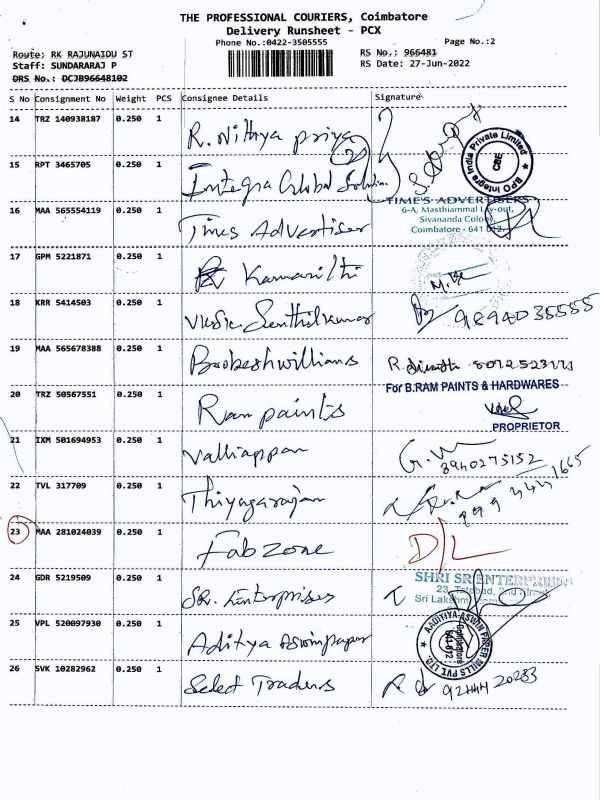 THE PROFESSIONAL COURIERS, Coimbatore
Delivery Runsheet - PCX
Phone No.:0422-3505555 Page No.:2
Route: RK RAJUNAIDU ST RS No.: 966481
Staff: SUNDARARAJ P RS Date: 27-Jun-2022
DRS No.: DCJB96648102
S No Consignment No Weight PCS Consignee Details Signature
14 TRZ 140938187 0.250 1 R. Nithya priya
15 RPT 3465705 0.250 1 Integra Global Solution
BPO Integra India Private Limited
CBE
16 MAA 565554119 0.250 1 Times Advertiser
TIME'S ADVERTISERS
6-A, Masthiammal Lay-out,
Sivananda Colony
Coimbatore - 641 012.
17 GPM 5221871 0.250 1 Kamanithi
18 KRR 5414503 0.250 1 Senthilkumar 9894035555
19 MAA 565678388 0.250 1 Boobeshwillians R.
20 TRZ 50567551 0.250 1 Ram paints
For B.RAM PAINTS & HARDWARES
PROPRIETOR
21 IXM 501694953 0.250 1 Valliappan
3940275152
22 TVL 317709 0.250 1 Thiyagarajan
23 MAA 281024039 0.250 1 Fabzone D/L
24 GDR 5219509 0.250 1 SR. Enterprises
SHRI SR ENTERPRISES
Sri Lakshmi
25 VPL 520097930 0.250 1 Aditya Aswinpaper
AADITHYA ASWIN PAPER MILLS PVT LTD.
Coimbatore
641 012
26 SVK 10282962 0.250 1 Select Traders